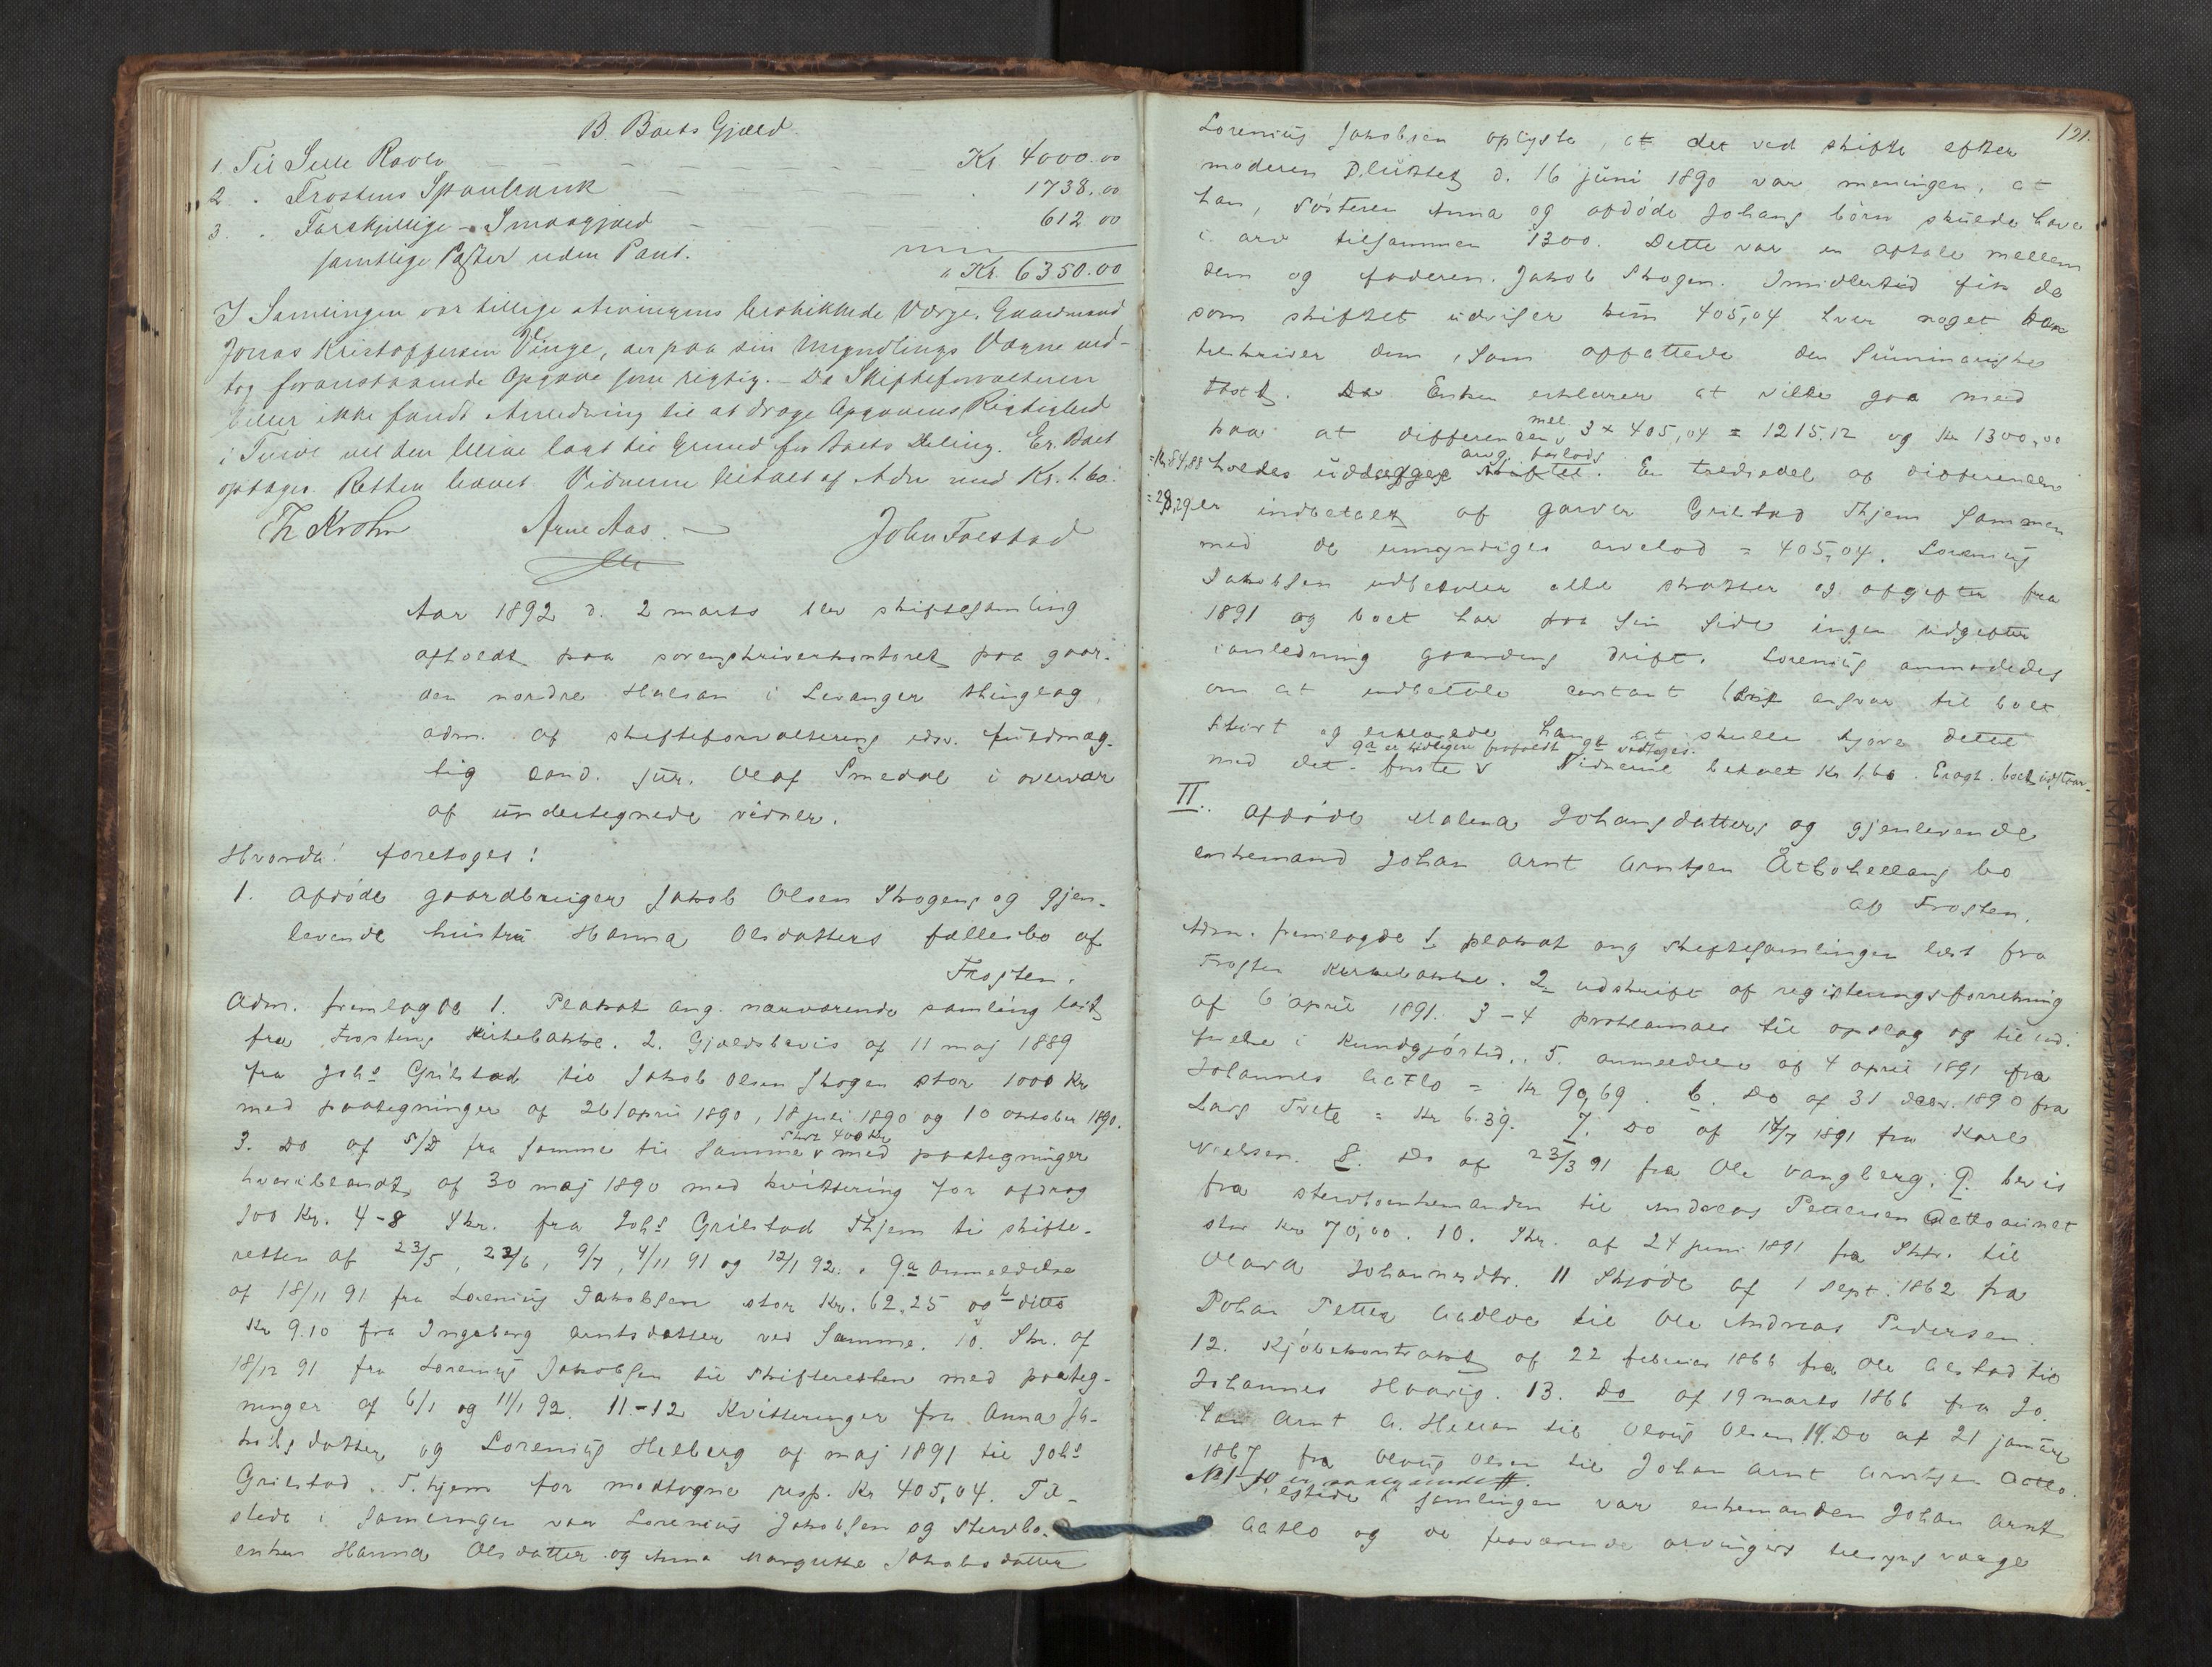 B. Boets Gjæld
1. Til Selle Ravlo Kr. 4000.00
2. Frostens Sparebank 1738.00
3. Forskjellige Smaagjæld 612 00
samtlige Poster uden Pant.
Kr. 6350.00
I Samlingen var tillige arvingens beskikkede Værge, Gaardmand
Jonas Kristoffersen Vinge, der paa sin Myndlings Vegne ved-
tog foranstaaende Opgave som rigtig. - Da Skifteforvalteren
heller ikke fandt Anledning til at drage Opgavens Rigtighed
i Tvivl vil den blive lagt til Grund for Boets Deling. Er. Boet
optages. Retten hævet. Vidnerne betalt af Adm med Kr. 1.60.
Th Krohn Arne Aas. John Folstad
Aar 1892 d. 2 marts blev skiftesamling
afholdt paa sorenskriverkontoret paa gaar-
den nordre Halsan i Levanger thinglag,
adm. af skifteforvalterens edsv. fuldmæg-
tig cand. jur. Olaf Smedal i overvær
af undertegnede vidner.
Hvorda! foretoges:
1. Afdøde gaardbruger Jakob Olsen Skogens og gjen-
levende hustru Hanna Olsdatters fællesbo af
Frosten.
Adm. fremlagde 1. Plakat ang. nærværende samling læst
fra Frostens kirkebakke. 2. Gjældsbevis af 11 maj 1889
fra Johs Grilstad til Jakob Olsen Skogen stor 1000 Kr
med paategninger af 26 april 1890, 18 juli 1890 og 10 oktober 1890.
3. Do af S/D fra samme til samme v med paategninger
stor 400 Kr
hvoriblandt af 30 maj 1890 med kvittering for afdrag
100 Kr. 4-8 Skr. fra Johs Grilstad Thjem til skifte-
retten af 23/5, 22/6, 9/7, 4/11 91 og 12/1 92. 9a Anmeldelse
af 18/11 91 fra Lorenius Jakobsen stor Kr. 62.25 og b ditto
Kr 9.10 fra Ingeborg Arntsdatter ved samme. 10. Skr. af
18/12 91 fra Lorenius Jakobsen til skifteretten med paateg-
ninger af 6/1 og 11/1 92. 11-12 Kvitteringer fra Anna Ja-
kobsdatter og Lorenius Helberg af maj 1891 til Johs
Grilstad T.hjem for modtagne resp. Kr 405,04. Til-
stede i samlingen var Lorenius Jakobsen og stervbo-
enken Hanna Olsdatter og Anna Margrethe Jakobsdatter
121.
Lorenius Jakobsen oplyste, at det ved skifte efter
moderen sluttet d. 16 juni 1890 var meningen, at
han, søsteren Anna og afdøde Johans børn skulde have
i arv tilsammen 1300. Dette var en aftale mellem
dem og faderen. Jakob Skogen. Imidlertid fik de
som skiftet udviser kun 405,04 hver noget han
tilskriver dem, som opfattede den summariske
Enken erklærer at ville gaa med
paa at differencen v 3 x 405,04 = 1215,12 og Kr 1300,00
mel
= Kr 84,88 holdes udlægget. En trediedel af differencen
arvg. forlods
= 28,29 er indbetalt af garver Grilstad Thjem sammen
med de umyndiges arvelod = 405,04. Lorenius
Jakobsen udbetaler alle skatter og afgifter fra
1891 og boet har paa sin side ingen udgifter
i anledning gaardens drift. Lorenius anmodedes
om at indbetale contant ansvar til boet
snart og erklærede han at skulle gjøre dette
9a er tidligere frafaldt vedtages.
med det første v Vidnerne betalt Kr. 1,60. Eragt. boet udstaar.
II. Afdøde Malena Johansdatters og gjenlevende
enkemand Johan Arnt Arntsen Åtlohellans bo
af Frosten.
Adm. fremlagde 1. plakat ang skiftesamlingen læst fra
Frosten kirkebakke. 2. udskrift af registreringsforretning
af 6 april 1891. 3-4 proklamaer til opslag og til ind-
førelse i Kundgjørtid.. 5. anmeldelse af 4 april 1891 fra
Johannes Aatlo = Kr 90,69. 6. Do af 31 decbr. 1890 fra
Lars Trete = Kr 6.39. 7. Do af 14/7 1891 fra Karl
Nielsen. 8. Do af 23/3 91 fra Ole Vangberg. 9. bevis
fra stervboenkemanden til Andreas Pettersen Aatloaunet
stor Kr 70,00. 10. Skr. af 24 juni 1891 fra Skfr. til
Olava Johannesdtr. 11 Skjøde af 1 Sept. 1862 fra
Johan Petter Aatloe til Ole Andreas Pedersen.
12. Kjøbekontrakt af 22 februar 1866 fra Ole Alstad til
Johannes Haavig. 13. Do af 19 marts 1866 fra Jo-
han Arnt A. Hellan til Olaus Olsen 14. Do af 21 januar
1867 fra Olaus Olsen til Johan Arnt Arntsen Aatlo.
No 1-10
Tilstede i samlingen var enkemanden Johan Arnt
Aatlo og de fraværende arvingers tilsyns værge